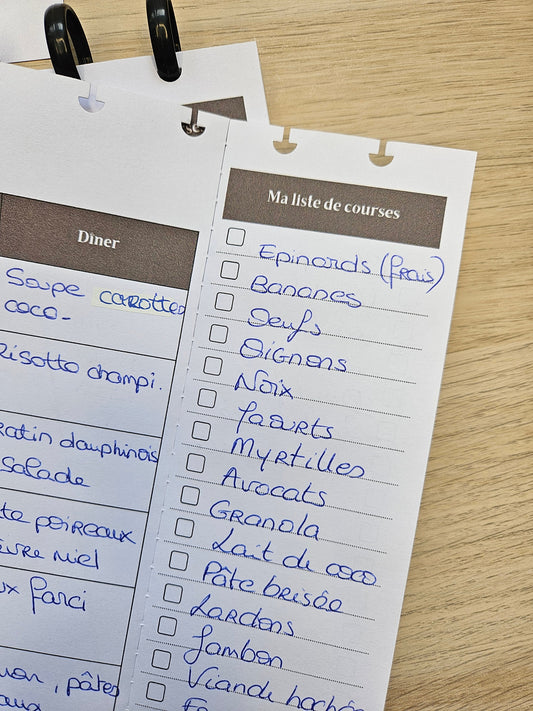 Dîner
Soupe carottes
coco-
Risotto champi.
gratin dauphinois
salade
poireaux
miel
farci
, pâtes
Ma liste de courses
Epinards (frais)
Bananes
Oeufs
Oignons
Noix
Yaourts
Myrtilles
Avocats
Granola
Lait de coco
Pâte brisée
Lardons
Jambon
Viande hachée